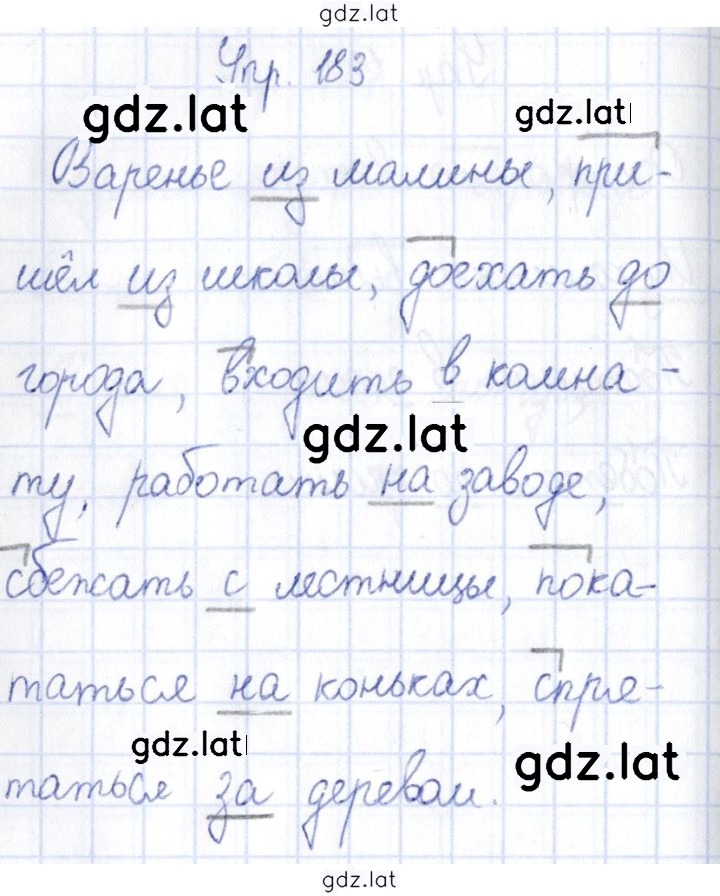 gdz.lat
Упр. 183
gdz.lat gdz.lat
Варенье из малины, при-
шёл из школы, доехать до
города, входить в комна-
gdz.lat
ту, работать на заводе,
сбежать с лестницы, пока-
таться на коньках, спря-
gdz.lat gdz.lat
таться за деревом.
gdz.lat